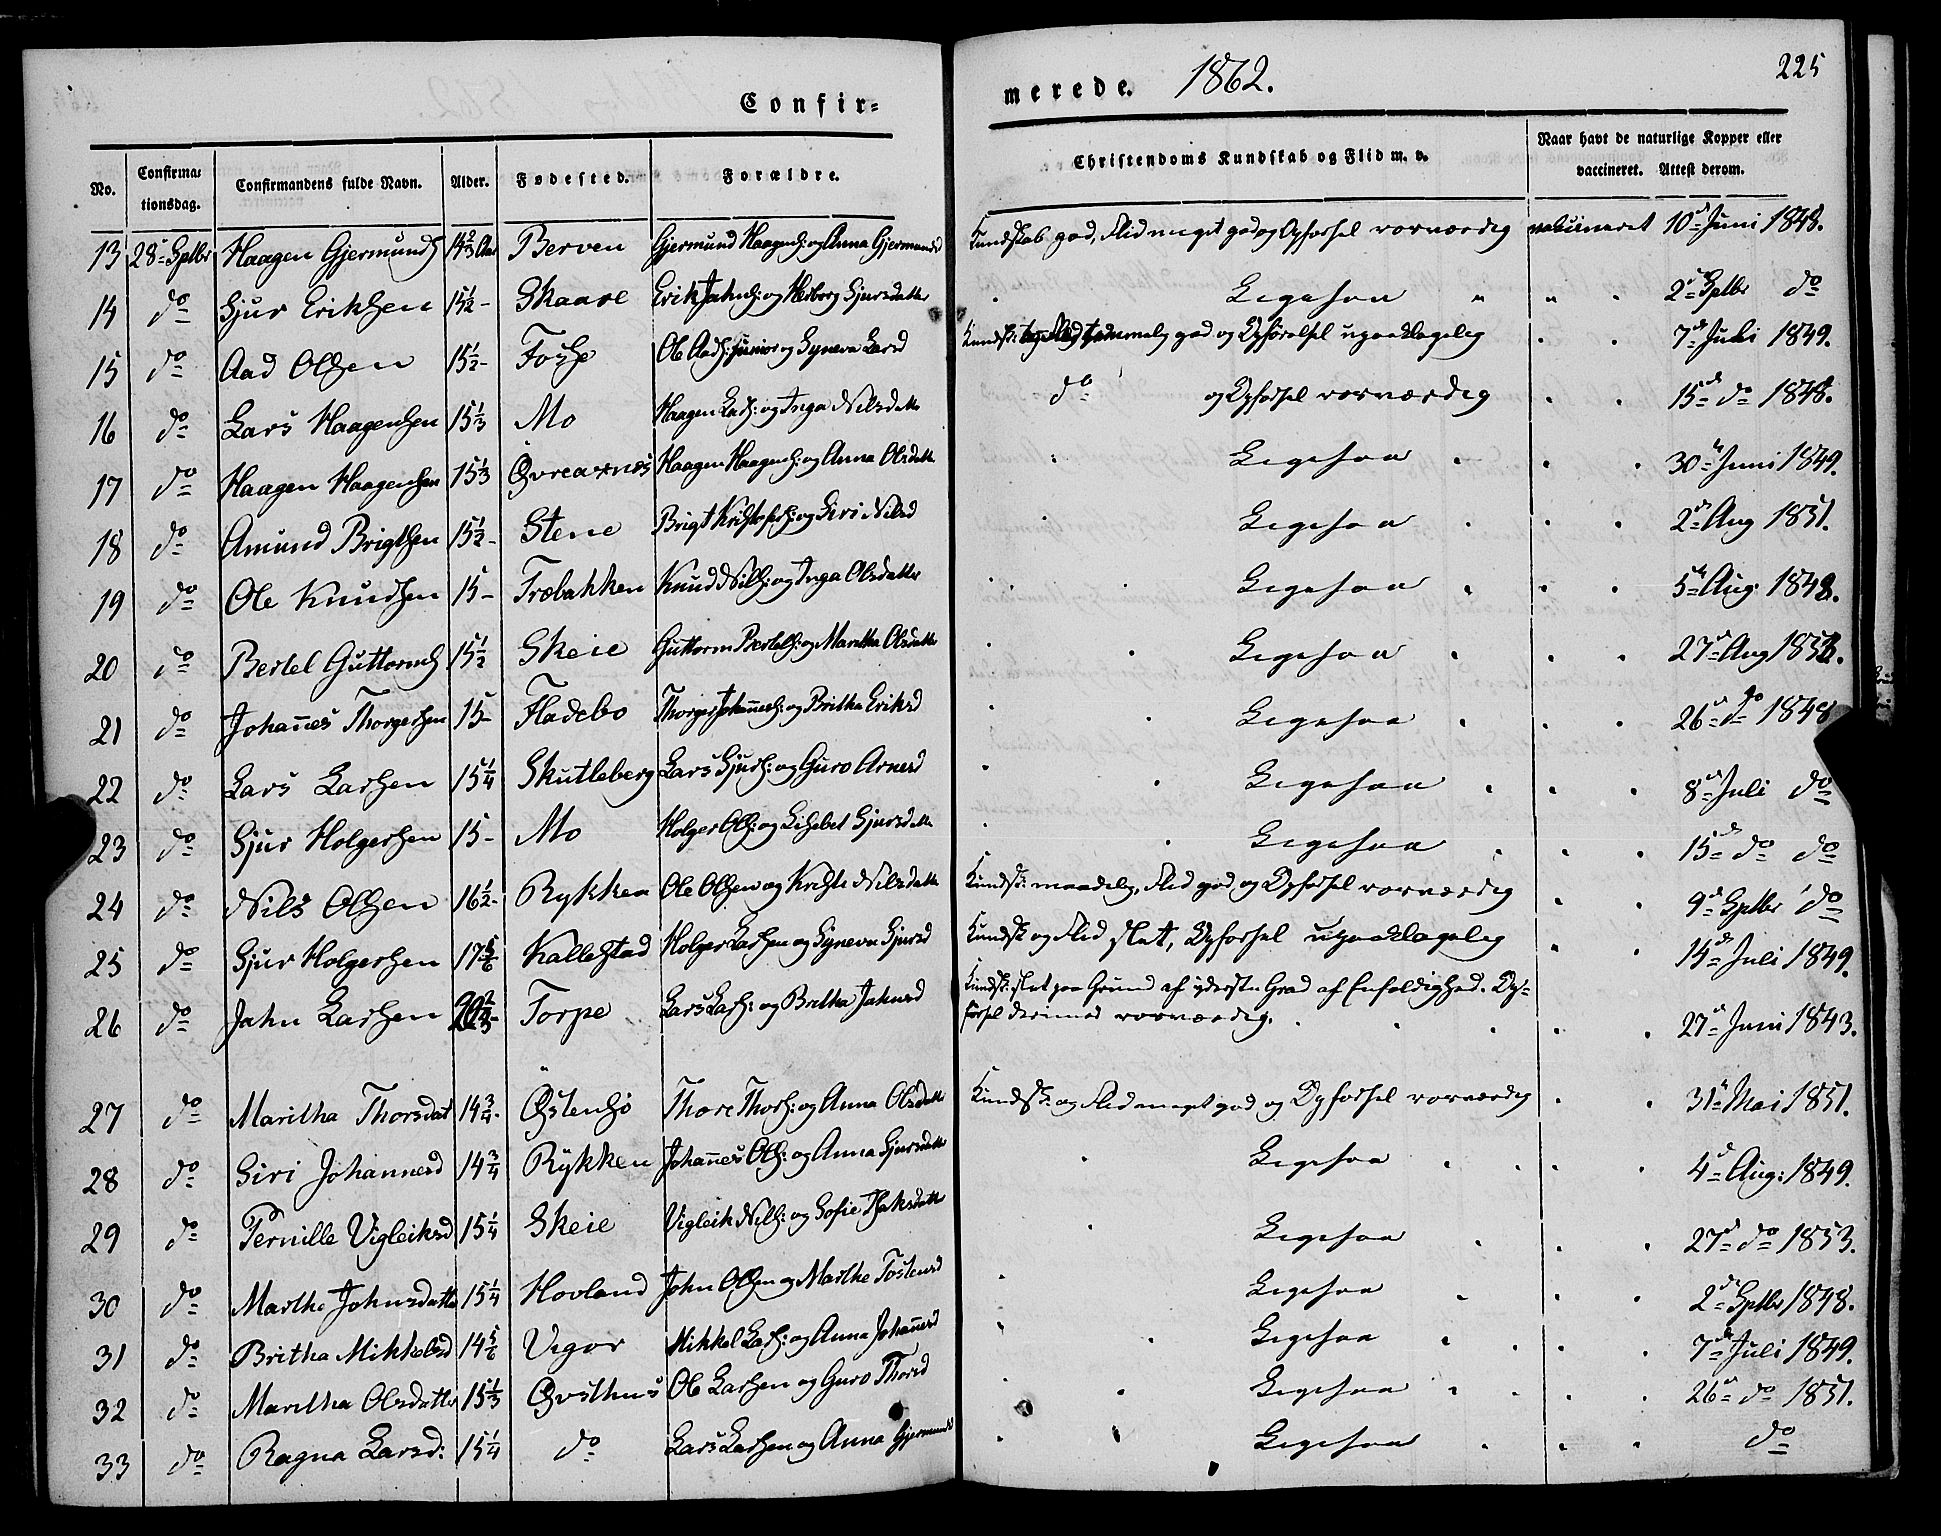 Confir-
merede. 1862.
225
No. | Confirma-tionsdag. | Confirmandens fulde Navn. | Alder. | Fødested. | Forældre. | Christendoms Kundskab og Flid m. v. | Naar havt de naturlige Kopper eller vaccineret. Attest derom.
13 28de Sptbr Haagen Gjermunds 14 2/3 Aar Berven Gjermund Haagens: og Anna Gjermundsd Kundskab god, Flid meget god og Opførsel rosværdig vakcineret 10de Juni 1848.
14 do Sjur Eriksen 15 1/2 - Skaare Erik Jahns: og Herborg Sjursdatter Ligesaa " " 2de Sptbr do
15 do Aad Olsen 15 1/2 - Fosse Ole Aads: junior og Syneva Larsd Kundsk: og Flid temmelig god og Opførelsel upaaklagelig 7de Juli 1849.
16 do Lars Haagensen 15 1/3 Mo Haagen Lars: og Inga Nilsdatte do og Opførsel rosværdig 15de do 1848.
17 do Haagen Haagensen 15 1/3 Øvreaxnæs Haagen Haagens: og Anna Olsdatte Ligesaa 30te Juni 1849.
18 do Amund Brigtsen 15 1/2 - Stene Brigt Kristofers: og Siri Nilsd Ligesaa 2de Aug 1851.
19 do Ole Knudsen 15 - Træbakken Knud Nils: og Inga Olsdatter Ligesaa 5te Aug: 1848.
20 do Bertel Guttorms 15 1/2 Skeie Guttorm Bertels: og Maritha Olsdatte Ligesaa 27de Aug 1853.
21 do Johañes Thorgersen 15 - Fladebo Thorger Johañes: og Britha Eriksd Ligesaa 26de do 1848
22 do Lars Larsen 15 1/4 Skutleberg Lars Sjurs: og Guro Arnesd Ligesaa 8de Juli do
23 do Sjur Holgersen 15 - Mo Holger Ols: og Lisebet Sjursdatte Ligesaa 15de do do
24 do Nils Olsen 16 1/2 - Rykken Ole Olsen og Kristi Nilsdatte Kundsk: maadelig, Flid god og Opførsel rosværdig 9de Sptbr do
25 do Sjur Holgersen 17 5/6 Kallestad Holger Larsen og Syneva Sjursd Kundsk og Flid slet, Opførsel upaaklagelig 14de Juli 1849.
26 do Jahn Larsen Torpe Lars Lars: og Britha Jahnsd Kundsk: slet paa Grund af yderste Grad af Enfoldighed. Op-
førsel derimod rosværdig. 27de Juni 1843.
27 do Maritha Thorsdat 14 3/4 - Østensø Thore Thors: og Anna Olsdatte Kundsk: og Flid meget god og Opførsel rosværdig 31te Mai 1851.
28 do Siri Johannesd 14 3/4 Rykken Johañes Ols: og Anna Sjursdatte Ligesaa 4de Aug: 1849.
29 do Pernille Vigleiksd 15 1/4 Skeie Vigleik Nils: og Sofie Isaksdatte Ligesaa 27de do 1853.
30 do Marthe Johnsdatte 15 1/4 Hovland John Olsen og Marthe Tostensd Ligesaa 2de Sptbr 1848.
31 do Britha Mikkelsd 14 5/6 Vigør Mikkel Lars: og Anna Johañesd Ligesaa 7de Juli 1849.
32 do Maritha Olsdatter 15 1/3 Øvsthus Ole Larsen og Guro Thorsd Ligesaa 26de do 1851.
33 do Ragna Larsd: 15 1/4 do Lars Larsen og Anna Gjermunds Ligesaa do